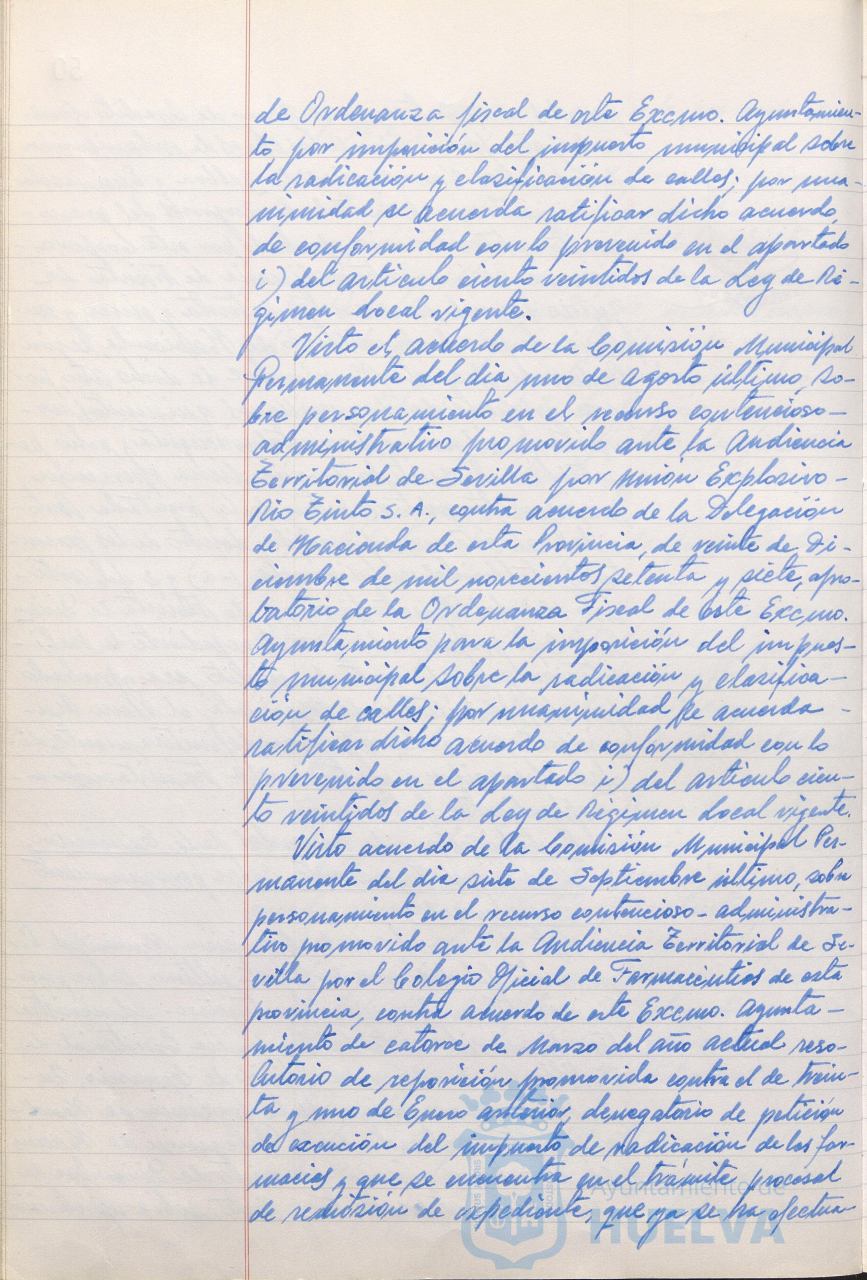 de Ordenanza fiscal de este Excmo. Ayuntamien-
to, por imposición del impuesto municipal sobre
la radicación y clasificación de calles; por una-
nimidad se acuerda ratificar dicho acuerdo,
de conformidad con lo prevenido en el apartado
i) del artículo ciento veintidos de la Ley de Ré-
gimen Local vigente.
Visto el acuerdo de la Comisión Municipal
Permanente del dia uno de agosto último, so-
bre personamiento en el recurso contencioso-
administrativo promovido ante la Audiencia
Territorial de Sevilla por Unión Explosivo-
Rio Tinto S.A., contra acuerdo de la Delegación
de Hacienda de esta Provincia, de veinte de Di-
ciembre de mil novecientos setenta y siete, apro-
batorio de la Ordenanza Fiscal de este Excmo.
Ayuntamiento para la imposición del impues-
to municipal sobre la radicación y clasifica-
ción de calles; por unanimidad se acuerda -
ratificar dicho acuerdo de conformidad con lo
prevenido en el apartado i) del artículo cien-
to veintidos de la Ley de Régimen Local vigente.
Visto acuerdo de la Comisión Municipal Per-
manente del dia siete de Septiembre último, sobre
personamiento en el recurso contencioso-administra-
tivo promovido ante la Audiencia Territorial de Se-
villa por el Colegio Oficial de Farmaceútios de esta
provincia, contra acuerdo de este Excmo. Ayunta-
miento de catorce de Marzo del año actual reso-
lutorio de reposición promovida contra el de trein-
ta y uno de Enero anterior, denegatorio de petición
de exención del impuesto de radicación de las far-
macias y que se encuentra en el trámite procesal
de remisión de expediente, que ya se ha efectua-
Ayuntamiento de
HUELVA